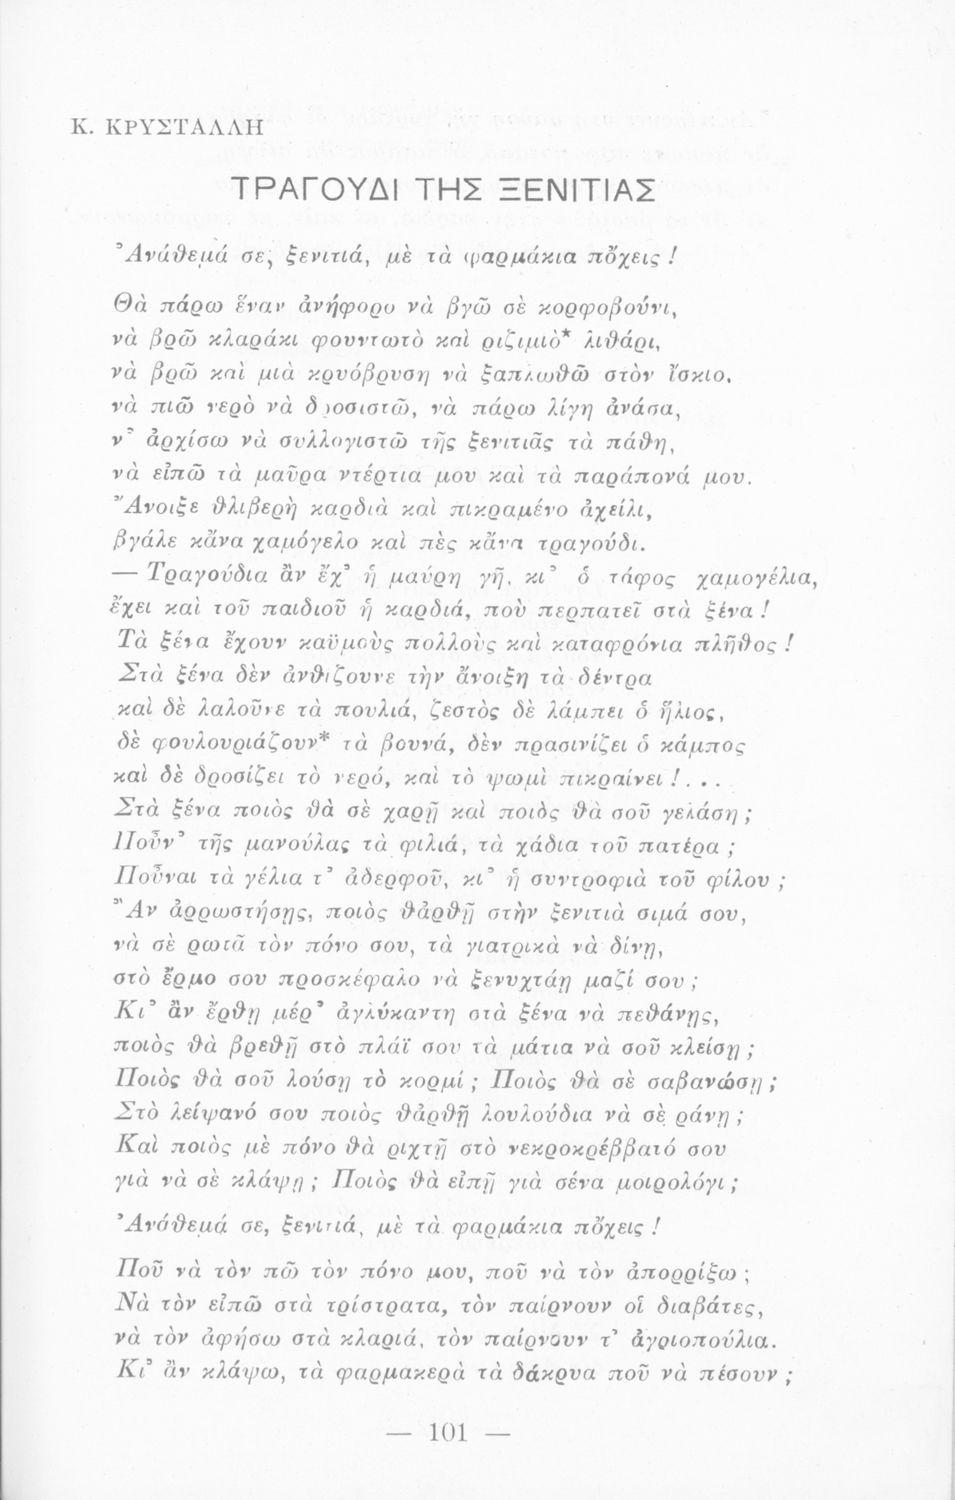 Κ. ΚΡΥΣΤΑΛΛΗ
ΤΡΑΓΟΥΔΙ ΤΗΣ ΞΕΝΙΤΙΑΣ
Ἀνάθεμά σε, ξενιτιά, μὲ τὰ φαρμάκια πὄχεις !
Θὰ πάρω ἕναν ἀνήφορο νὰ βγῶ σὲ κορφοβούνι,
νὰ βρῶ κλαράκι φουντωτὸ καὶ ριζιμιὸ* λιθάρι,
νὰ βρῶ καὶ μιὰ κρυόβρυση νὰ ξαπλωθῶ στὸν ἴσκιο,
νὰ πιῶ νερὸ νὰ δροσιστῶ, νὰ πάρω λίγη ἀνάσα,
ν’ ἀρχίσω νὰ συλλογιστῶ τῆς ξενιτιᾶς τὰ πάθη,
νὰ εἰπῶ τὰ μαῦρα ντέρτια μου καὶ τὰ παράπονά μου.
Ἄνοιξε θλιβερὴ καρδιὰ καὶ πικραμένο ἀχείλι,
βγάλε κἄνα χαμόγελο καὶ πὲς κἄνα τραγούδι.
— Τραγούδια ἂν ἔχ’ ἡ μαύρη γῆ, κι’ ὁ τάφος χαμογέλια,
ἔχει καὶ τοῦ παιδιοῦ ἡ καρδιά, ποὺ περπατεῖ στὰ ξένα !
Τὰ ξένα ἔχουν καϋμοὺς πολλοὺς καὶ καταφρόνια πλῆθος !
Στὰ ξένα δὲν ἀνθίζουνε τὴν ἄνοιξη τὰ δέντρα
καὶ δὲ λαλοῦνε τὰ πουλιά, ζεστὸς δὲ λάμπει ὁ ἥλιος,
δὲ φουλουριάζουν* τὰ βουνά, δὲν πρασινίζει ὁ κάμπος
καὶ δὲ δροσίζει τὸ νερό, καὶ τὸ ψωμὶ πικραίνει !...
Στὰ ξένα ποιὸς θὰ σὲ χαρῇ καὶ ποιὸς θὰ σοῦ γελάση ;
Ποῦν’ τῆς μανούλας τὰ φιλιά, τὰ χάδια τοῦ πατέρα ;
Ποῦναι τὰ γέλια τ’ ἀδερφοῦ, κι’ ἡ συντροφιὰ τοῦ φίλου ;
Ἂν ἀρρωστήσης, ποιὸς θἀρθῇ στὴν ξενιτιὰ σιμά σου,
νὰ σὲ ρωτᾶ τὸν πόνο σου, τὰ γιατρικὰ νὰ δίνῃ,
στὸ ἔρμο σου προσκέφαλο νὰ ξενυχτάῃ μαζί σου ;
Κι’ ἂν ἔρθῃ μέρ’ ἀγλύκαντη στὰ ξένα νὰ πεθάνῃς,
ποιὸς θὰ βρεθῇ στὸ πλάϊ σου τὰ μάτια νὰ σοῦ κλείσῃ ;
Ποιὸς θὰ σοῦ λούσῃ τὸ κορμί ; Ποιὸς θὰ σὲ σαβανώσῃ ;
Στὸ λείψανό σου ποιὸς θἀρθῇ λουλούδια νὰ σὲ ράνῃ ;
Καὶ ποιὸς μὲ πόνο θὰ ριχτῇ στὸ νεκροκρέββατό σου
γιὰ νὰ σὲ κλάψῃ ; Ποιὸς θὰ εἰπῇ γιὰ σένα μοιρολόγι ;
Ἀνάθεμά σε, ξενιτιά, μὲ τὰ φαρμάκια πὄχεις !
Ποῦ νὰ τὸν πῶ τὸν πόνο μου, ποῦ νὰ τὸν ἀπορρίξω ;
Νὰ τὸν εἰπῶ στὰ τρίστρατα, τὸν παίρνουν οἱ διαβάτες,
νὰ τὸν ἀφήσω στὰ κλαριά, τὸν παίρνουν τ’ ἀγριοπούλια.
Κι’ ἂν κλάψω, τὰ φαρμακερὰ τὰ δάκρυα ποῦ νὰ πέσουν ;
— 101 —